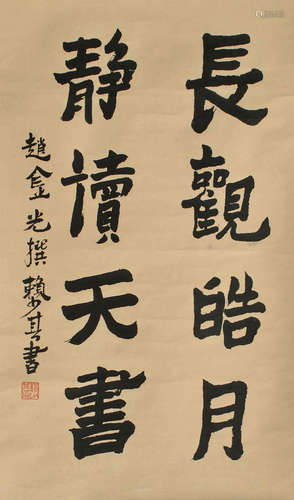 長觀皓月
靜讀天書
趙金光撰賴少其書